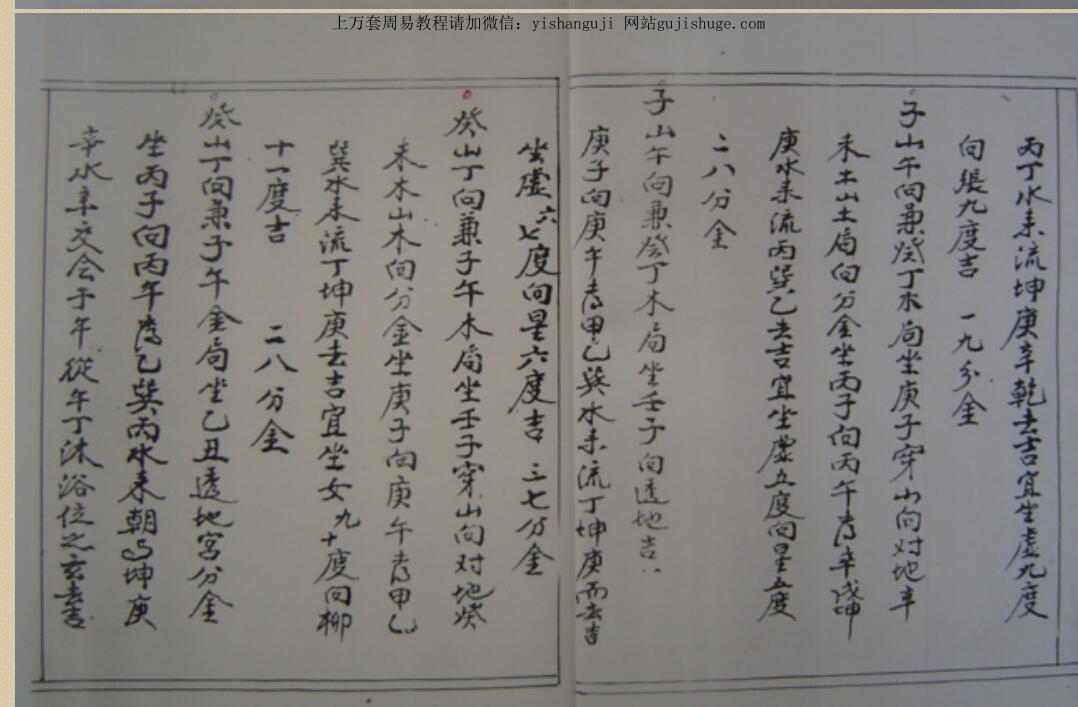 上万套周易教程请加微信：yishanguji 网站gujishuge.com
丙丁水来流坤庚辛乾去吉宜坐虚九度
向張九度吉 一九分金
子山午向兼癸丁水局坐庚子穿山向对地辛
未土山土局向分金坐丙子向丙午考辛戌坤
庚水来流丙巽乙去吉宜坐虚五度向星五度
二八分金
子山午向兼癸丁木局坐壬子向透地吉
庚子向庚午考甲乙巽水来流丁坤庚而去吉
坐虚六七度向星六度吉 三七分金
癸山丁向兼子午木局坐壬子穿山向对地癸
未木山木向分金坐庚子向庚午考甲乙
巽水来流丁坤庚去吉宜坐女九十度向柳
十一度吉 二八分金
癸山丁向兼子午金局坐乙丑透地宫分金
坐丙子向丙午考乙巽丙水来朝 坤庚
辛水辛交会于午從午丁沐浴位之玄去吉